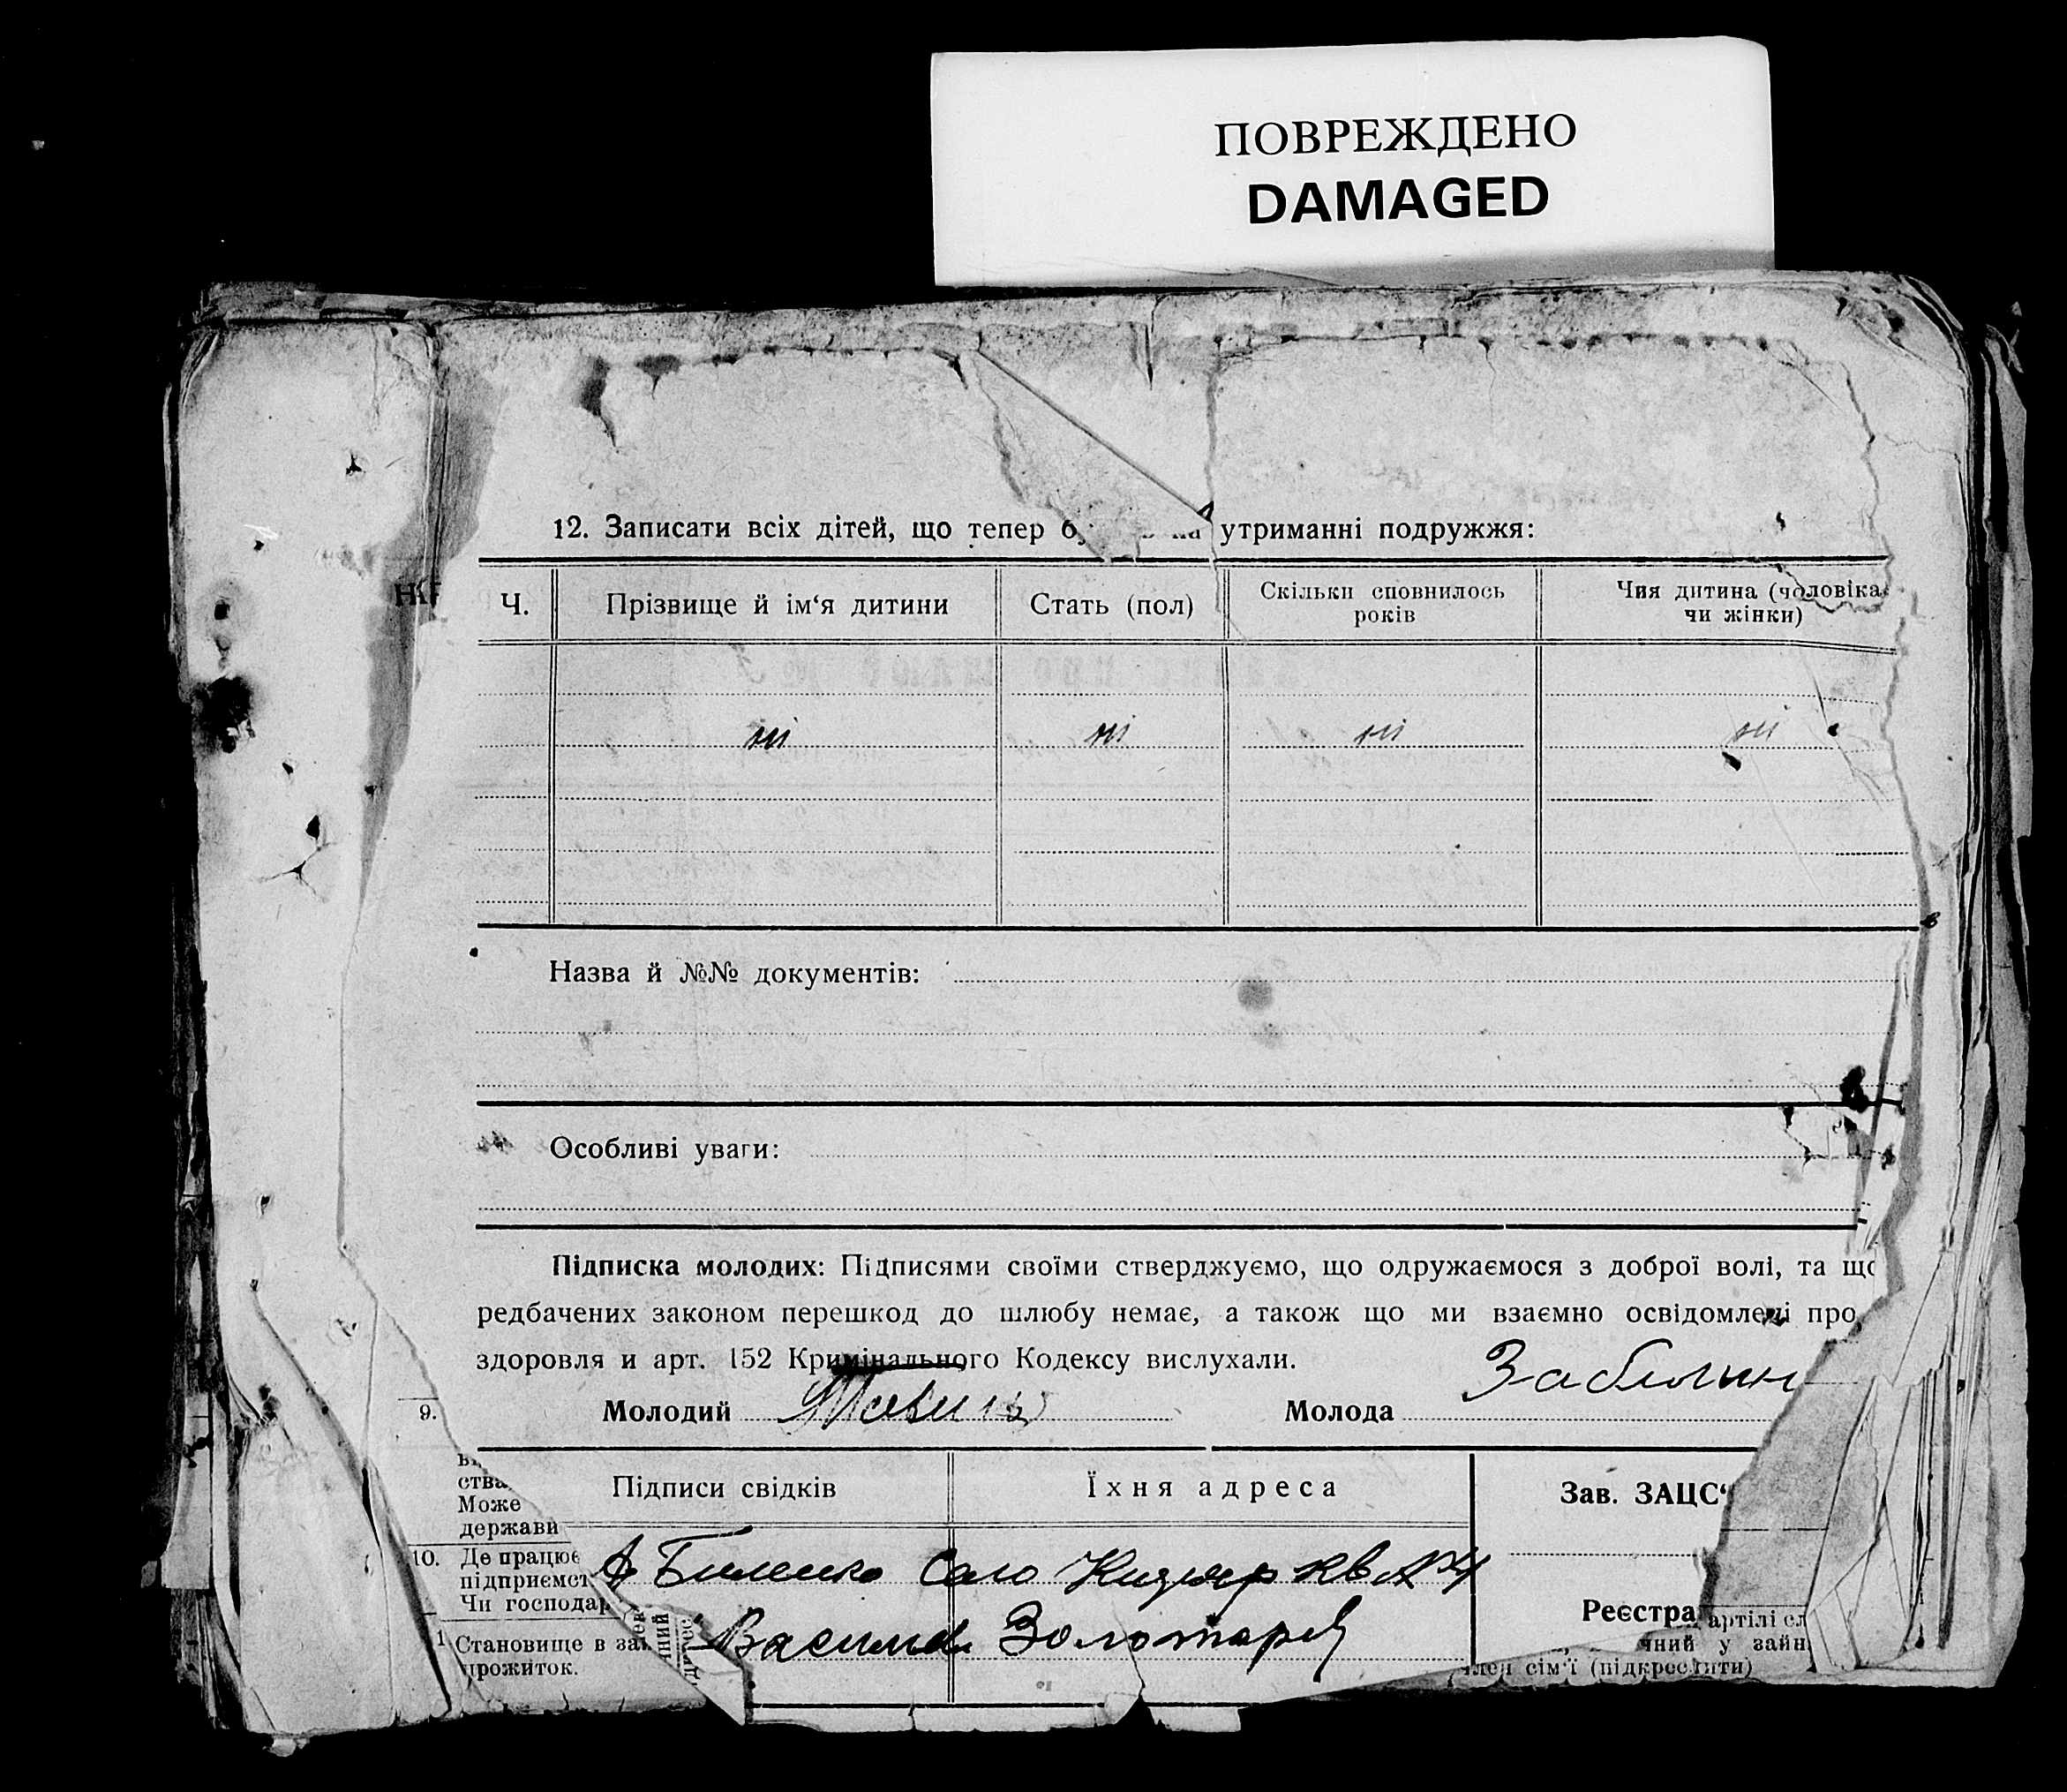 ПОВРЕЖДЕНО
DAMAGED
12. Записати всіх дітей, що тепер на утриманні подружжя:
Ч. Прізвище й ім‘я дитини Стать (пол) Скільки сповнилось років Чия дитина (чоловіка чи жінки)
ні ні ні ні
Назва й №№ документів:
Особливі уваги:
Підписка молодих: Підписями своїми стверджуємо, що одружаємося з доброї волі, та що
редбачених законом перешкод до шлюбу немає, а також що ми взаємно освідомлені про
здоровля и арт. 152 Кримінального Кодексу вислухали.
9. Молодий Молода
Підписи свідків Їхня адреса Зав. ЗАЦС‘
ства
Може
держави
10. Де працює
підприємст
Чи господар
Биленко Село Кв №4
Василь Золотарь
Реєстра
артілі сл
Становище в за
прожиток.
чний у зайн
член сім‘ї (підкреслити)